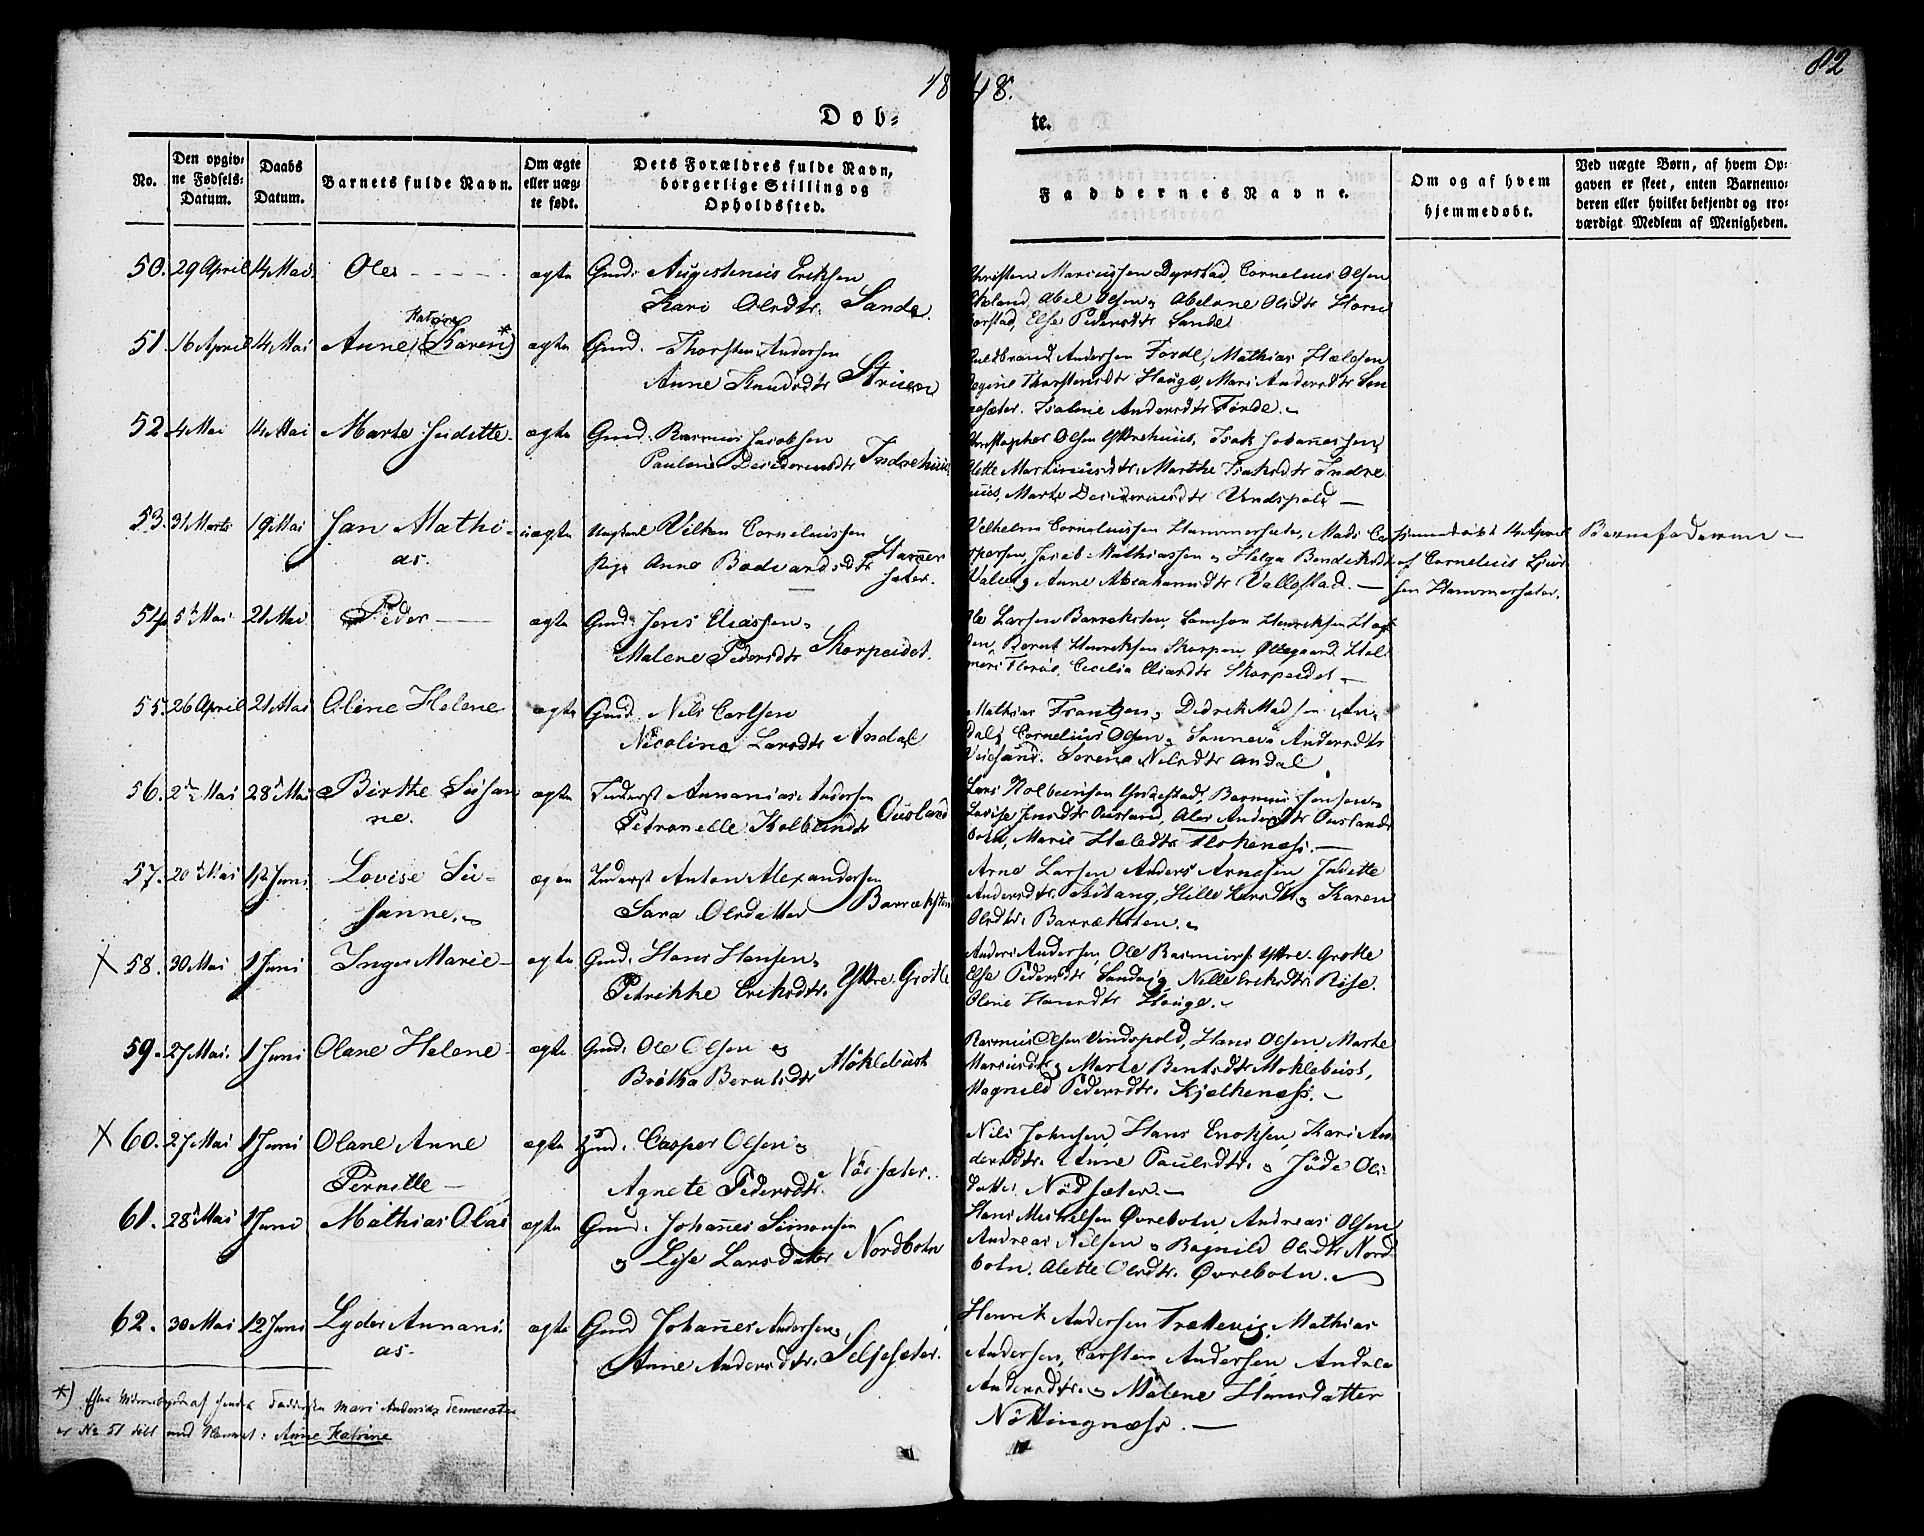 1848.
82
Døb-
te.
No.
Den opgiv-
ne Fødsels-
Datum.
Daabs
Datum.
Barnets fulde Navn.
Om ægte
eller uæg-
te født.
Dets Forældres fulde Navn,
borgerlige Stilling og
Opholdssted.
Faddernes Navne.
Om og af hvem
hjemmedøbt.
Ved uægte Børn, af hvem Op-
gaven er skeet, enten Barnemo-
deren eller hvilket bekjendt og tro-
værdigt Medlem af Menigheden.
50. 29 April 14 Mai Oles ægte Gmd: Augustinus Eriksen
Kari Olsdtr. Sande.
Christen Marcussen Dyrstad, Cornelius Olsen
Abel Olsen og Abelone Olsdtr
Else Pedersdtr Sande
Katrine
51. 16 April 14 Mai Anne (Karen)* ægte Gmd. Thorsten Andersen
Anne Knudsdtr
Guldbrand Andersen Førde, Mathias Helgesen
Regine Thorstensdtr Hauge, Mari Andersdtr
Andersdtr Førde.
52. 4 Mai 14 Mai Marte Juditte ægte Gmd. Rasmus Jacobsen
Pauline Desideriusdtr Indrehuus
Christopher Olsen Yttrehuus, Isak Johannessen,
Alette Martinusdtr. Marthe Isaksdtr Indre
huus, Marte Desideriusdtr Vindspold —
53. 31 Marts 19 Mai Jan Mathi-
as.
uægte Ungkarl Vilhem Corneliussen
Pige Anne Bodvardsdtr Hammer
sæter.
Vilhelm Corneliussen Hammersæter, Mads Ca
spersen, Jacob Mathiassen og Helga Bendiksdtr
og Anne Abrahamsdtr Vallestad. —
hjemmedøbt 14 April
af Cornelius
sen Hammersæter.
Barnefaderen —
54. 5 Mai 21 Mai Peder — ægte Gmd: Jens Eliassen og
Malene Pedersdtr Skorpeidet.
Ole Larsen Barrøksten, Samson Henriksen
Bernt Henriksen Skorpen, Øllegaard
Florøe, Cecilia Eliasdtr Skorpeidet —
55. 26 April 21 Mai Oline Helene ægte Gmd. Nils Carlsen
Nicolina Larsdtr Andal
Mathias Frantzen, Didrik Madsen An-
dal, Cornelius Olsen, Sanneva Andersdtr
Sørene Nilsdtr Andal
56. 2 Mai 28 Mai Birthe Susan
ne.
ægte Inderst Annanias Andersen
Petronelle Kolbeindtr Ousland
Lars Kolbeinsen Rasmus Jensen
Lovise Jensdtr Ousland, Andersdtr Ouslands
botn, Marie Flokenæss. —
57. 20 Mai 12 Juni Lovise Su-
sanne.
ægte Inderst Anton Alexandersen
Sara Olsdatter Barrøksten
Arne Larsen Anders Arnesen Juditte
Andersdtr. Hille Larsdtr og Karen
Olsdtr. Barrøksten.
X 58. 30 Mai 1 Juni Inger Marie ægte Gmd. Hans Hansen
Petrikke Eriksdtr. Yttre Grotle
Anders Andersen, Ole Rasmuss. Yttre Grotle
Else Pedersdtr Sandvig, Nille Eriksdtr Rise.
Oline Hansdtr Hauge.
59. 27 Mai. 1 Juni Olane Helene ægte Gmd. Ole Olsen og
Brøtha Berntsdtr Møklebust
Rasmus Olsen Vindspold, Hans Olsen, Marte
Mariusdtr og Marte Bentsdtr Moklebust,
Magnild Pedersdtr. Kjelkenæss. —
X 60. 27 Mai 1 Juni Olane Anne
Pernille —
ægte Gmd. Casper Olsen og
Agnete Pedersdtr. Nøssæter.
Nils Johnsen, Hans Enoksen, Kari An-
dersdtr. Anne Paulsdtr. og Jøde Ols
datter Nødsæter. —
61. 28 Mai 1 Juni Mathias Olai ægte Gmd. Johannes Simonsen
og Lise Larsdatter Nordbotn
Hans Mikkelsen Øvrebotn, Andreas Olsen
Andreas Nilsen og Ragnild Olsdtr Nord
botn. Alette Olsdtr. Øvrebotn. —
62. 30 Mai 12 Juni Lyder Annani-
as.
ægte Gmd Johannes Andersen og
Anne Andersdtr. Seljeseter.
Henrik Andersen Trættevig, Mathias
Andersen, Carsten Andersen, Andrea
Andersdtr. og Malene Hansdatter
Nøttingnæss. —
*) Efter af Fadderen Mari Andersdr
er No 51 døbt med Navnet: Anne Katrine